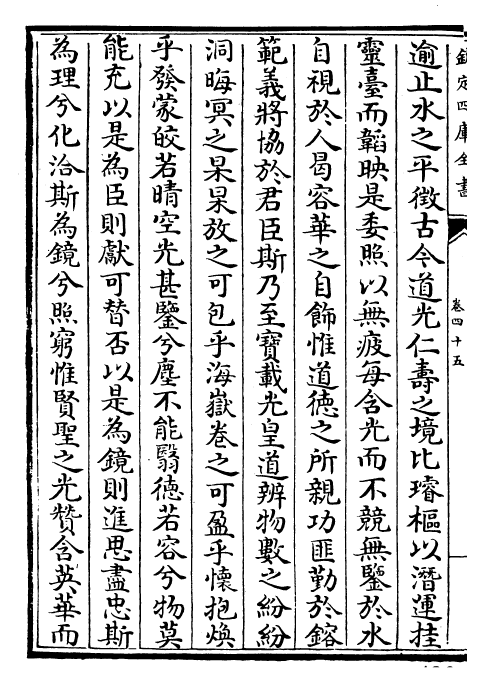 欽定四庫全書
卷四十五
逾止水之平徴古今道光仁壽之境比璿樞以潛運挂
靈臺而韜映是委照以無疲每含光而不競無鑒於水
自視於人曷容華之自飾惟道徳之所親功匪勤於鎔
範義將協於君臣斯乃至寶載光皇道辨物數之紛紛
洞晦冥之杲杲放之可包乎海嶽卷之可盈乎懷抱煥
乎發蒙皎若晴空光甚鑒兮塵不能翳徳若容兮物莫
能充以是為臣則獻可替否以是為鏡則進思盡忠斯
為理兮化洽斯為鏡兮照窮惟賢聖之光贊含英華而